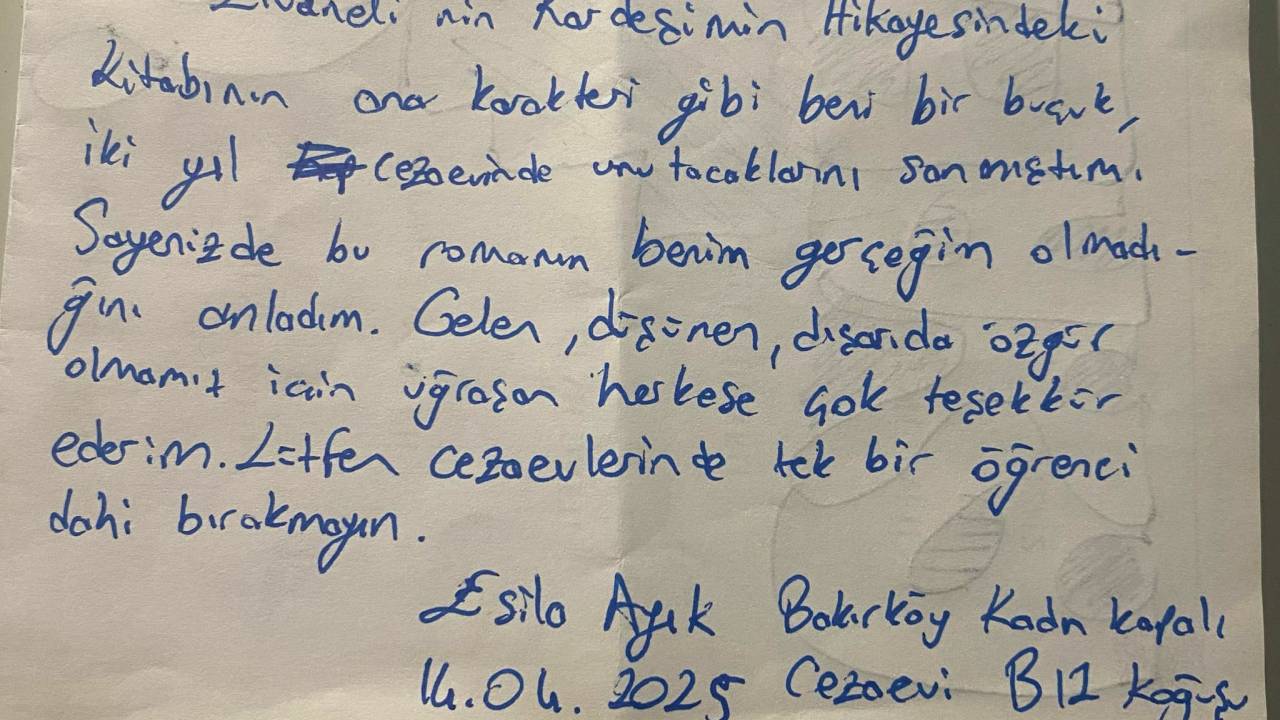 Livaneli'nin Kardeşimin Hikayesindeki
kitabının ana karakteri gibi beni bir buçuk,
iki yıl cezaevinde unutacaklarını sanmıştım.
Sayenizde bu romanın benim gerçeğim olmadı-
ğını anladım. Gelen, düşünen, dışarıda özgür
olmamız için uğraşan herkese çok teşekkür
ederim. Lütfen cezaevlerinde tek bir öğrenci
dahi bırakmayın.
Esila Ayık Bakırköy Kadın Kapalı
14.04.2025 Cezaevi B12 Koğuşu